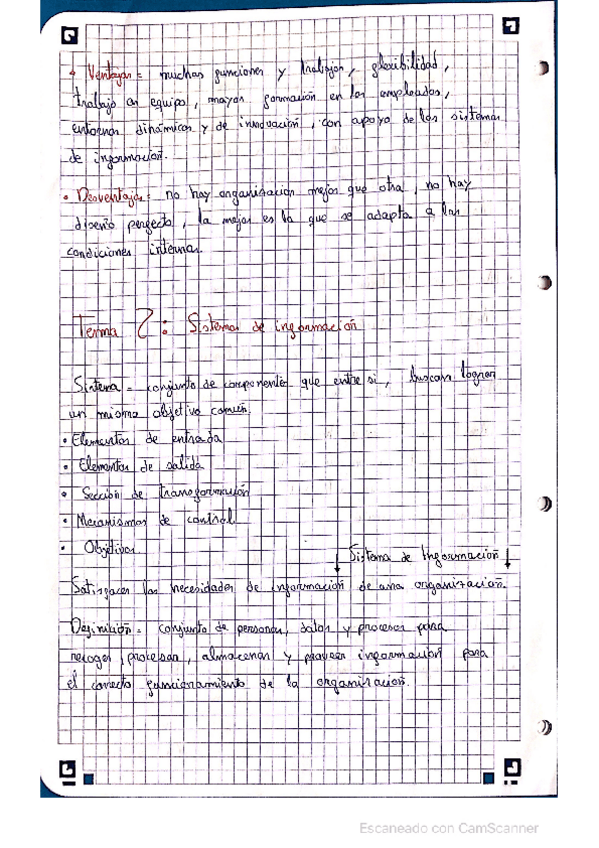 • Ventajas = muchas funciones y trabajos, flexibilidad,
trabajo en equipo, mayor formación en los empleados,
entornos dinámicos y de innovación, con apoyo de los sistemas
de información.
• Desventajas: no hay organización mejor que otra, no hay
diseño perfecto, la mejor es la que se adapta a las
condiciones internas.
Tema 2: Sistemas de información
Sistema = conjunto de componentes que entre si, buscan lograr
un mismo objetivo común.
• Elementos de entrada
• Elementos de salida
• Sección de transformación
• Mecanismos de control
• Objetivos.
↓ Sistema de Información ↓
Satisfacer las necesidades de información de una organización.
Definición = conjunto de personas, datos y procesos para
recoger, procesar, almacenar y proveer información para
el correcto funcionamiento de la organización.
Escaneado con CamScanner